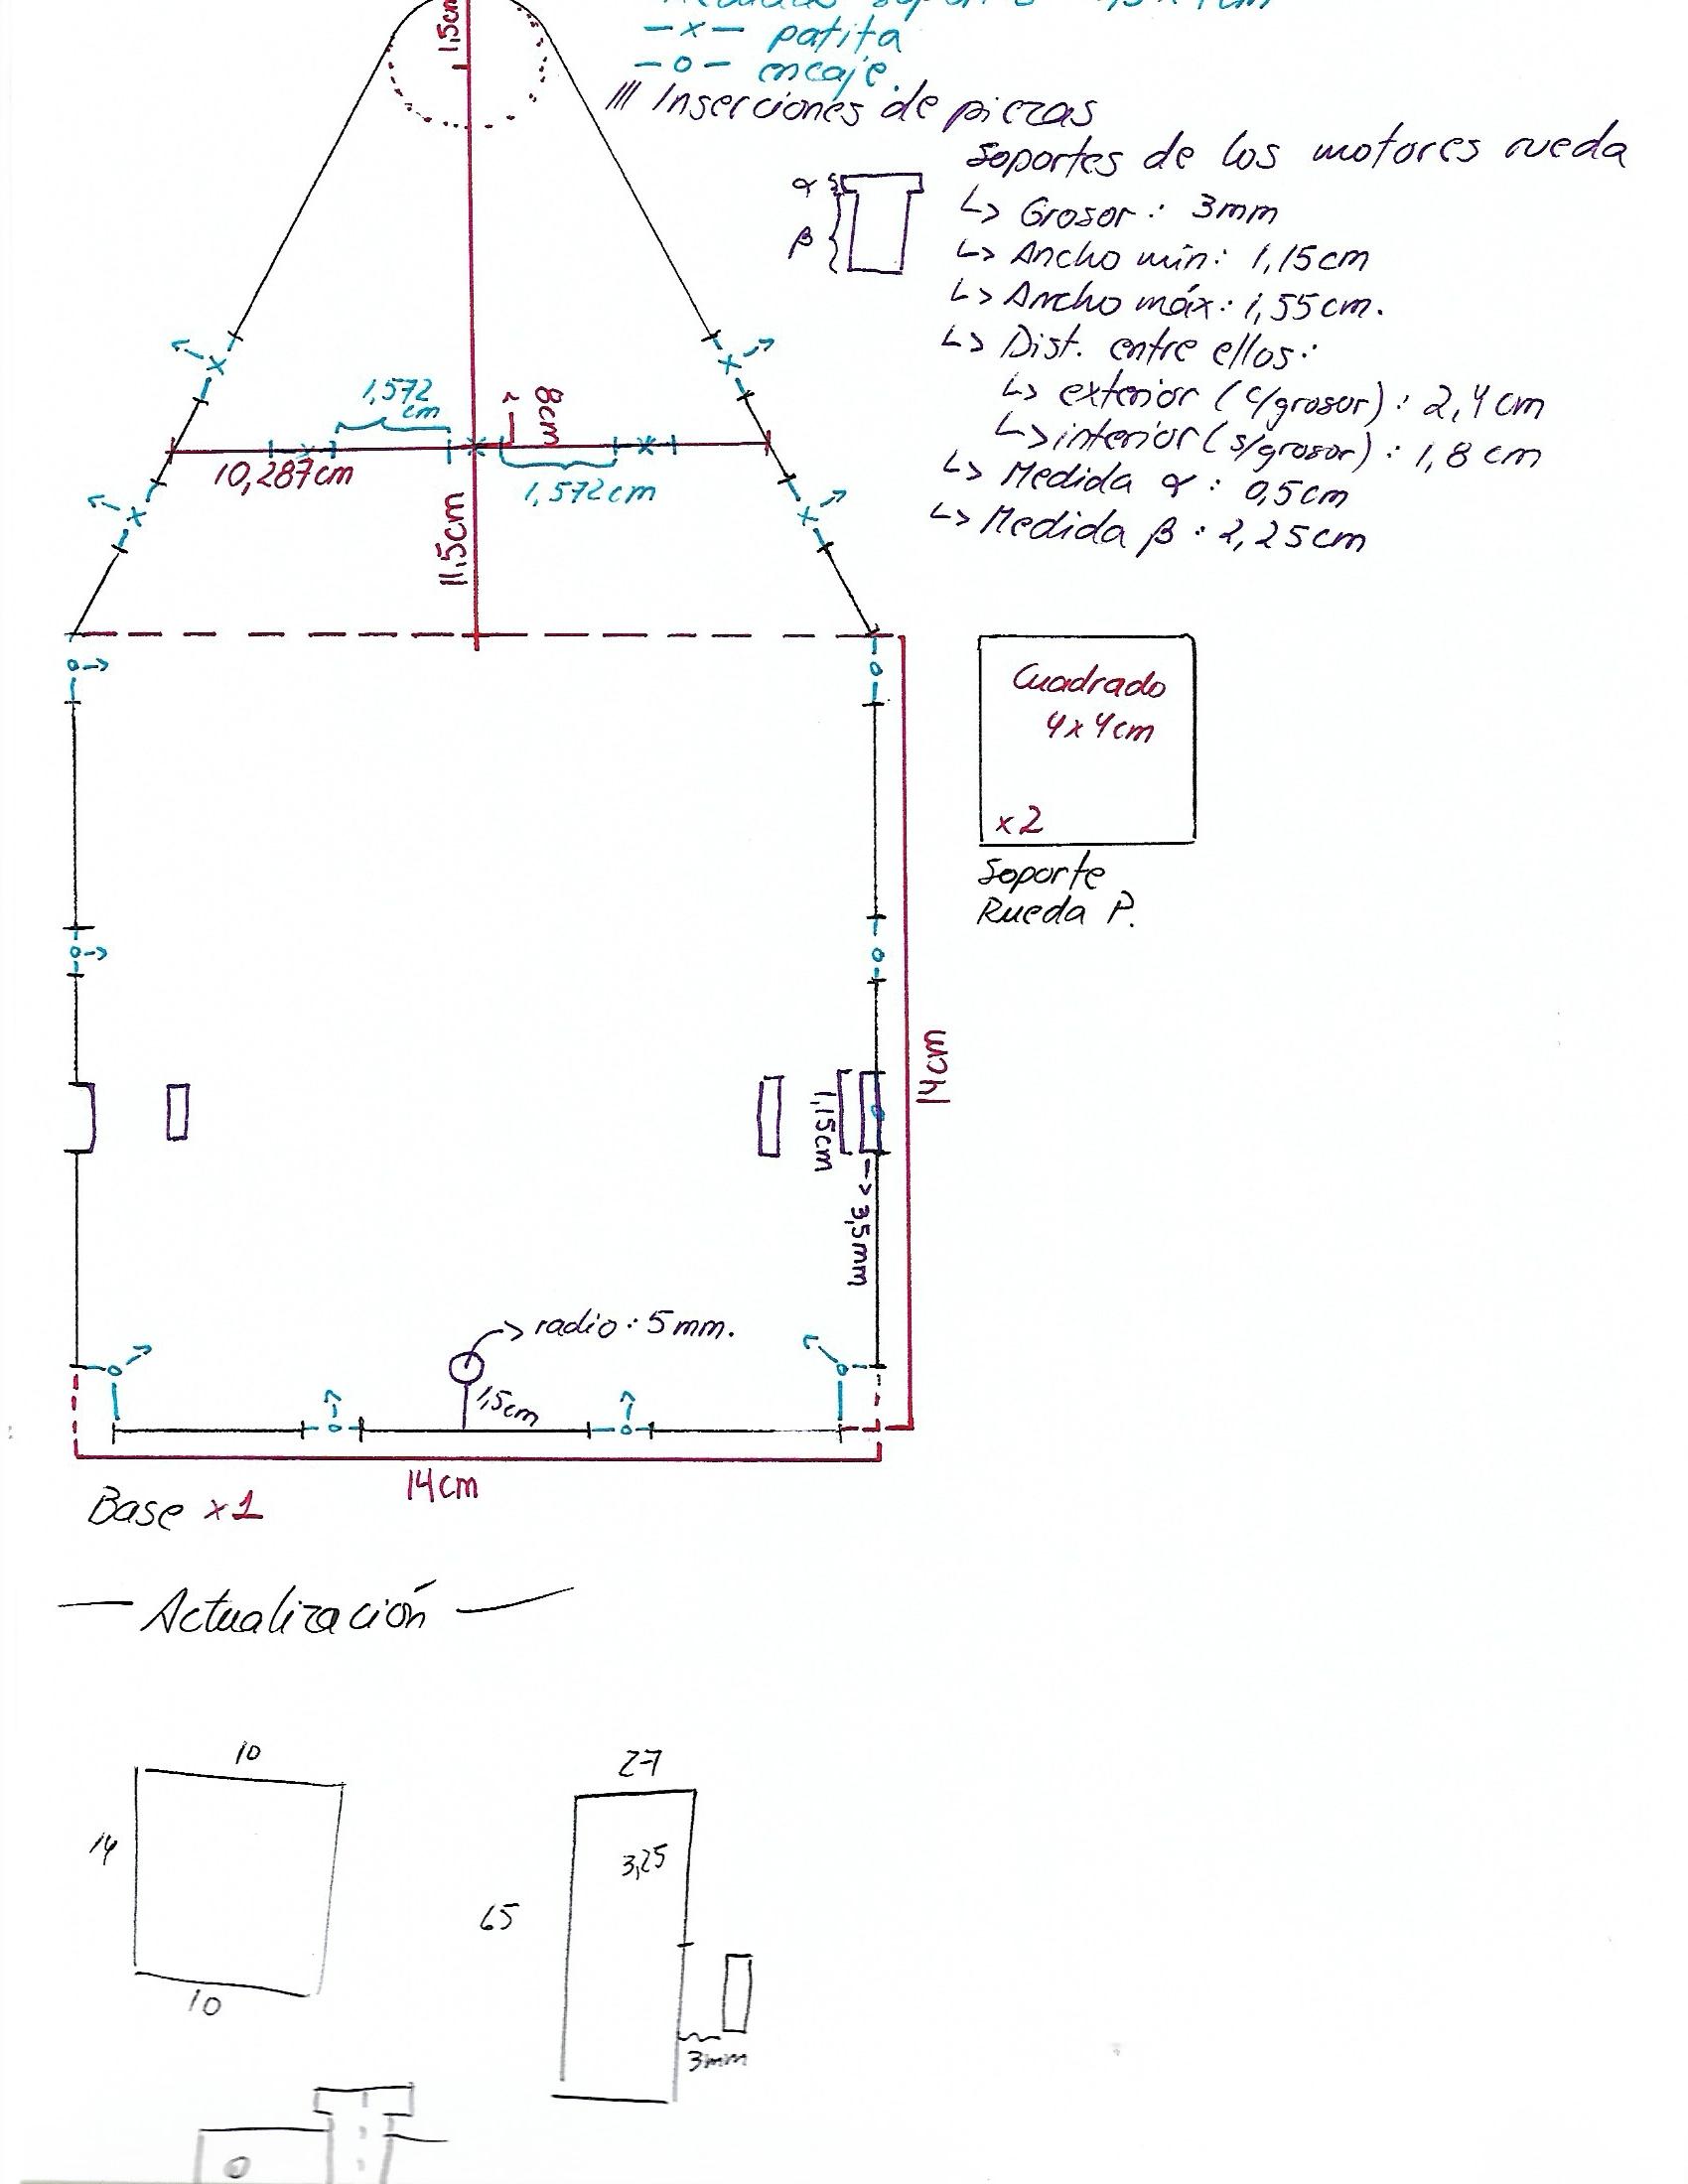 1,5cm
—x— patita
—o— encaje.
/// Inserciones de piezas
Soportes de los motores rueda
↳ Grosor: 3mm
↳ Ancho mín: 1,15cm
↳ Ancho máx: 1,55cm.
↳ Dist. entre ellos:
↳ exterior (c/grosor): 2,4cm
↳ interior (s/grosor): 1,8cm
↳ Medida α: 0,5cm
↳ Medida β: 2,25cm
α
β
1,572
cm
8cm
10,287cm
1,572cm
11,5cm
Cuadrado
4x4cm
x2
Soporte
Rueda P.
14cm
1,15cm
-> 3,5mm
-> radio: 5mm.
1,5cm
14cm
Base x1
— Actualización —
10
14
10
27
3,25
65
3mm